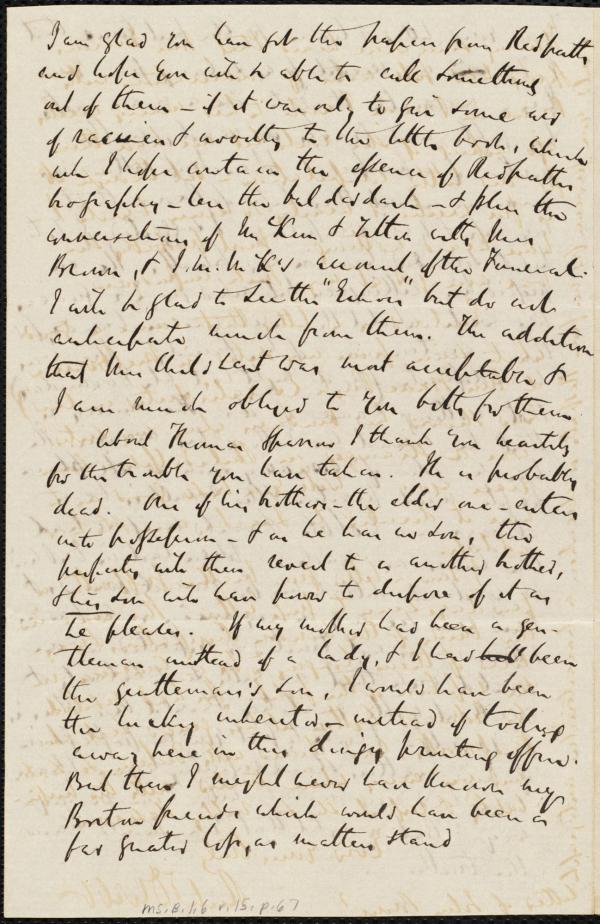 I am glad you have got the papers from Redpath
and hope you will be able to cull something
out of them – if it was only to give some air
of raciness & novelty to the little book, which
will I hope contain the essence of Redpath's
biography – less the balderdash – & plus the
conversations of McKim & Tilton with Mrs
Brown, & J. M. McK's account of the Funeral.
I will be glad to see the "Echoes" but do not
anticipate much from them. The addition
that Mrs Child sent was most acceptable &
I am much obliged to you both for them.
About Thomas Sparrow I thank you heartily
for the trouble you have taken. He is probably
dead. One of his brothers – the elder one – enters
into possession – & as he has no son, the
property will then revert to a another brother,
& his son will have power to dispose of it as
he pleases. If my mother had been a gen-
tleman instead of a lady, & I had been
the gentleman's son, I would have been
the lucky inheritor – instead of
away here in this dingy printing office.
But then I might never have known my
Boston friends which would have been a
far greater loss, as matters stand
MS.B.1.6 v.15, p.67